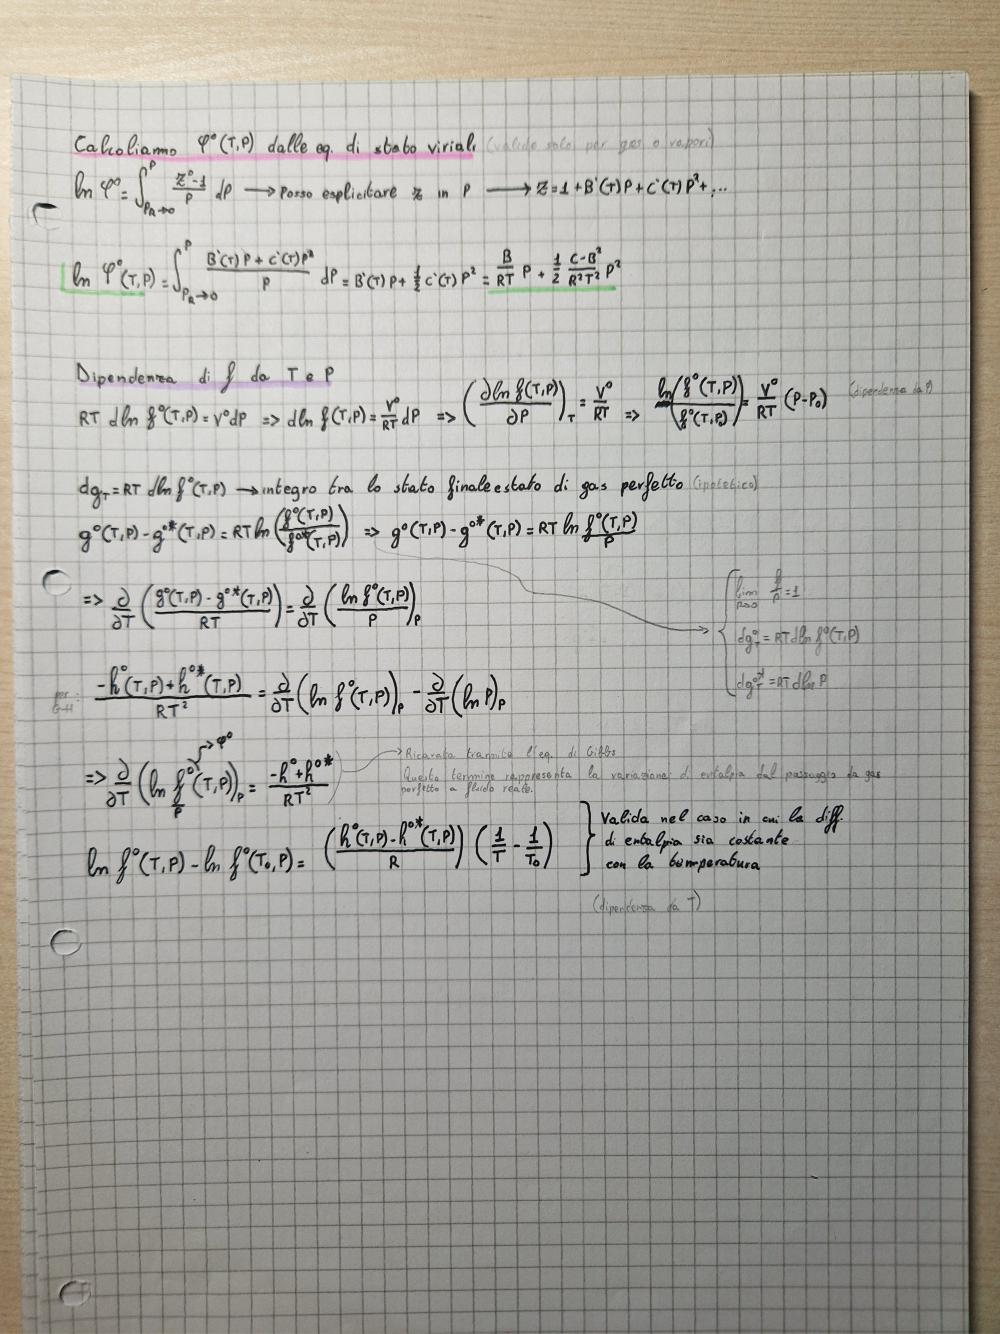 Calcoliamo φ°(T,P) dalle eq. di stato viriali (valido solo per gas o vapori)
ln φ° = ∫_{P_R→0}^{P} (z°-1)/P dP → Posso esplicitare z in P → Z = 1 + B'(T)P + C'(T)P² + ...
ln φ°(T,P) = ∫_{P_R→0}^{P} (B'(T)P + C'(T)P²)/P dP = B'(T)P + 1/2 C'(T)P² = B/RT P + 1/2 (C-B²)/(R²T²) P²
Dipendenza di f da T e P
RT dln f°(T,P) = V°dP => dln f(T,P) = V°/RT dP => (∂ln f(T,P)/∂P)_T = V°/RT => ln(f°(T,P)/f°(T,P₀)) = V°/RT (P-P₀) (dipendenza da P)
dg_T = RT dln f°(T,P) → integro tra lo stato finale e stato di gas perfetto (ipotetico)
g°(T,P) - g°*(T,P) = RT ln(f°(T,P)/f°*(T,P)) => g°(T,P) - g°*(T,P) = RT ln f°(T,P)/P
lim_{P→0} f/P = 1
=> ∂/∂T ((g°(T,P) - g°*(T,P))/RT) = ∂/∂T (ln f°(T,P)/P)_P
dg°_T = RT dln f°(T,P)
dg°*_T = RT dln P
per G-H: (-h°(T,P) + h°*(T,P))/RT² = ∂/∂T (ln f°(T,P))_P - ∂/∂T (ln P)_P
→ φ°
=> ∂/∂T (ln f°/P (T,P))_P = (-h° + h°*)/RT²
Ricavata tramite l'eq. di Gibbs
Questo termine rappresenta la variazione di entalpia dal passaggio da gas
perfetto a fluido reale.
ln f°(T,P) - ln f°(T₀,P) = ((h°(T,P) - h°*(T,P))/R) (1/T - 1/T₀)
Valida nel caso in cui la diff.
di entalpia sia costante
con la temperatura
(dipendenza da T)